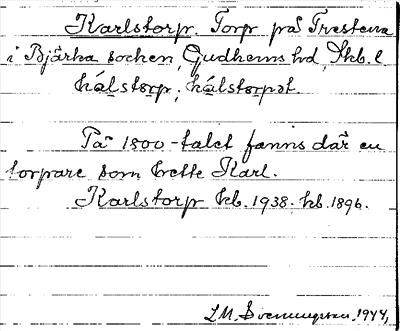 Karlstorp. Torp på Trestena
i Bjärka socken, Gudhems hd, Skb. l
kálstorp, kálstorpət.
På 1800-talet fanns där en
torpare som hette Karl.
Karlstorp kb. 1938. kb. 1896.
L.M. Svenungsson. 1944,